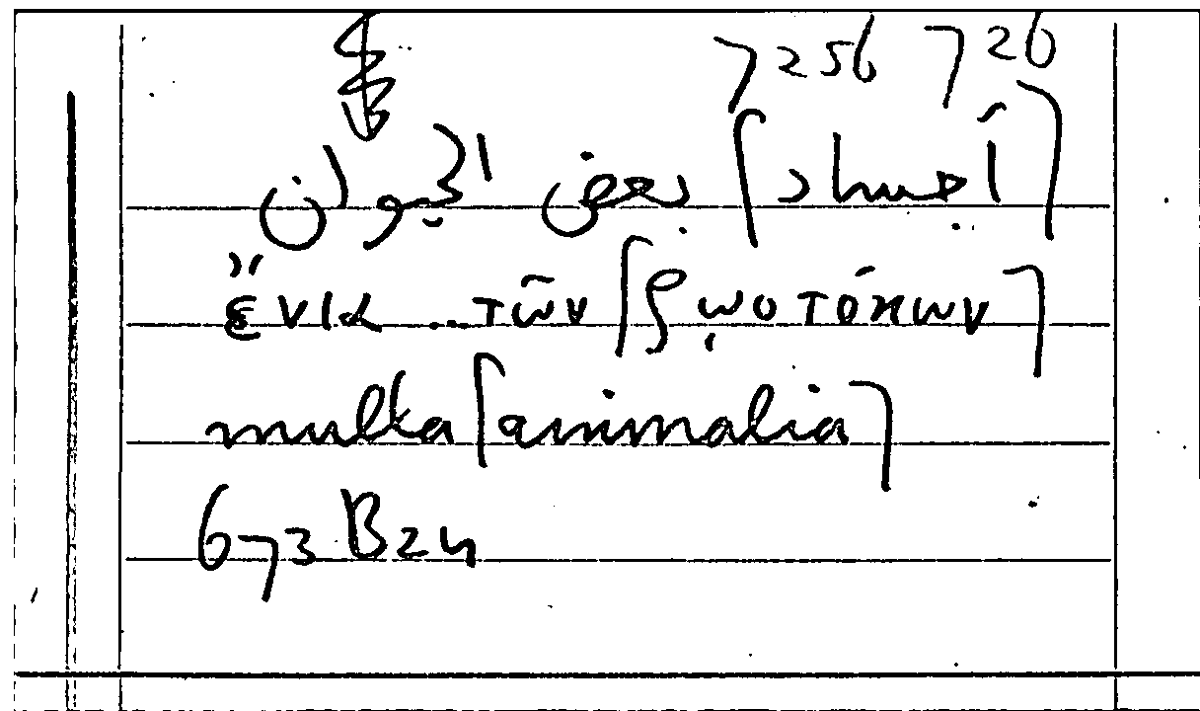 7256 726
[أجساد] بعض الحيوان
ἔνια ... τῶν [ζῳοτόκων]
multa [animalia]
673 B24